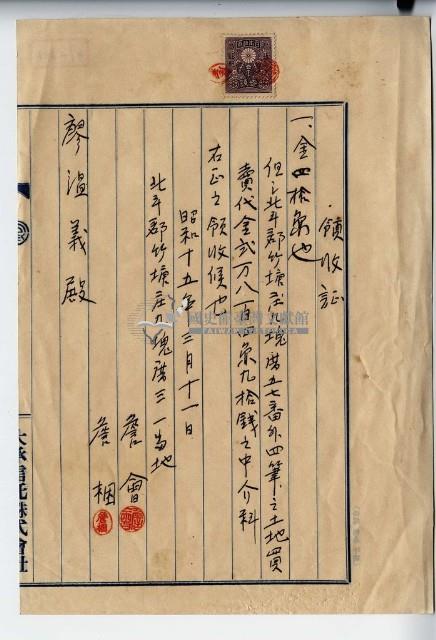 領收証
一、金四拾
但シ北斗郡竹塘庄九塊厝五七番外四筆之土地買
賣代金弍万八百 九拾銭之中介料
右正之領收候也
昭和十五年三月十一日
北斗郡竹塘庄九塊厝三一番地
詹會
詹梱
廖溫義殿
國史館臺灣文獻館
信託株式會社